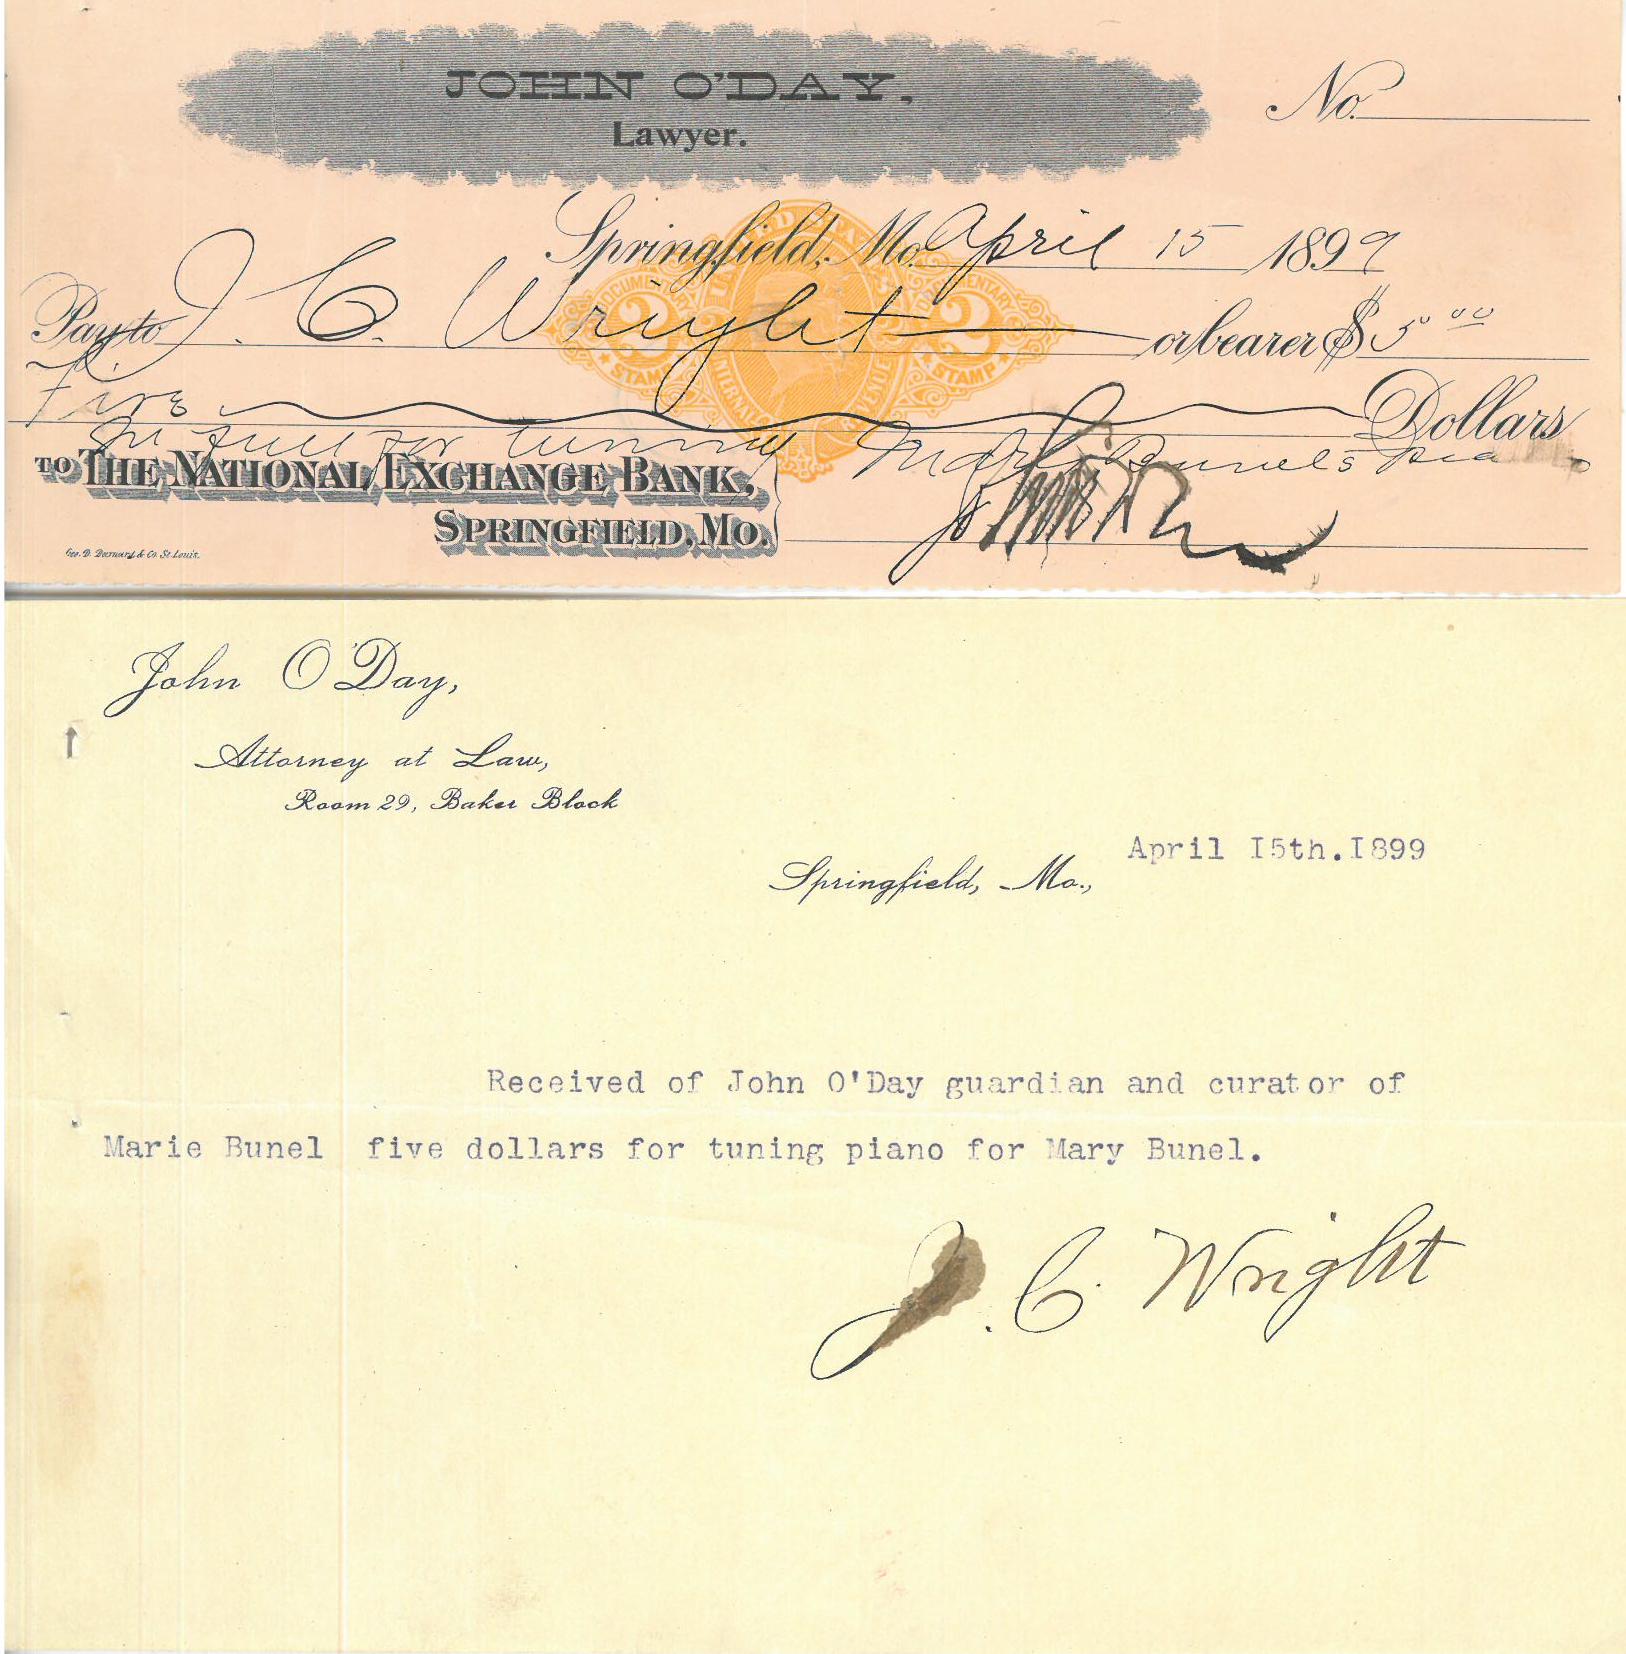 JOHN O'DAY.
Lawyer.
No.
Springfield, Mo. April 15 1899
Pay to J. C. Wright or bearer $ 5 00
Five Dollars
In full for tuning Marie Bunel's Piano
TO THE NATIONAL EXCHANGE BANK,
SPRINGFIELD, MO.
Geo. D. Barnard & Co. St. Louis.
UNITED STATES
DOCUMENTARY 2 STAMP
DOCUMENTARY 2 STAMP
INTERNAL REVENUE
John O'Day,
Attorney at Law,
Room 29, Baker Block
Springfield, Mo., April I5th.I899
Received of John O'Day guardian and curator of
Marie Bunel five dollars for tuning piano for Mary Bunel.
J. C. Wright